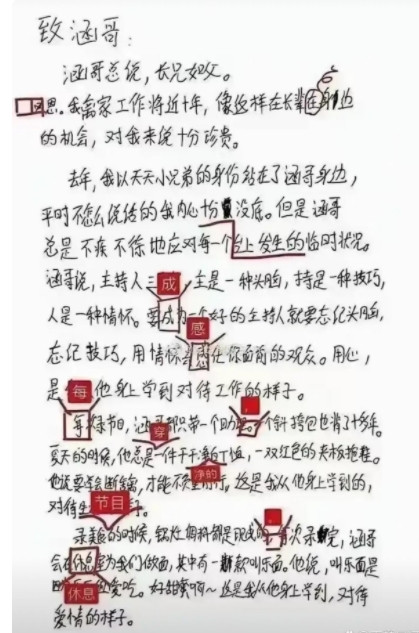 致涵哥：
涵哥总说，长兄如父。
思。我离家工作将近十年，像这样在长辈身边
的机会，对我来说十分珍贵。
去年，我以天天小兄弟的身份站在了涵哥身边，
平时不怎么说话的我内心十分没底。但是涵哥
总是不疾不徐地应对每一个台上发生的临时状况。
涵哥说，主持人三成，主是一种头脑，持是一种技巧，
人是一种情怀。要成为一个好的主持人就要忘记头脑，
感
忘记技巧，用情怀去你面前的观众。用心，
是每他身上学到对待工作的样子。
每录节目，涵哥都只带一个助理，一个斜挎包也背了十多年。
穿
夏天的时候，他总是一件干干净的T恤，一双红色的夹板拖鞋。
他说要学会断舍离，才能不前行。这是我从他身上学到的，
对待
节目
录的时候，锅灶都是现成的，首次录完，涵哥
会在休息为我们做面，其中有一款叫乐面。他说，叫乐面是
休息
爱吃。好甜蜜啊～这是我从他身上学到，对待
爱情的样子。